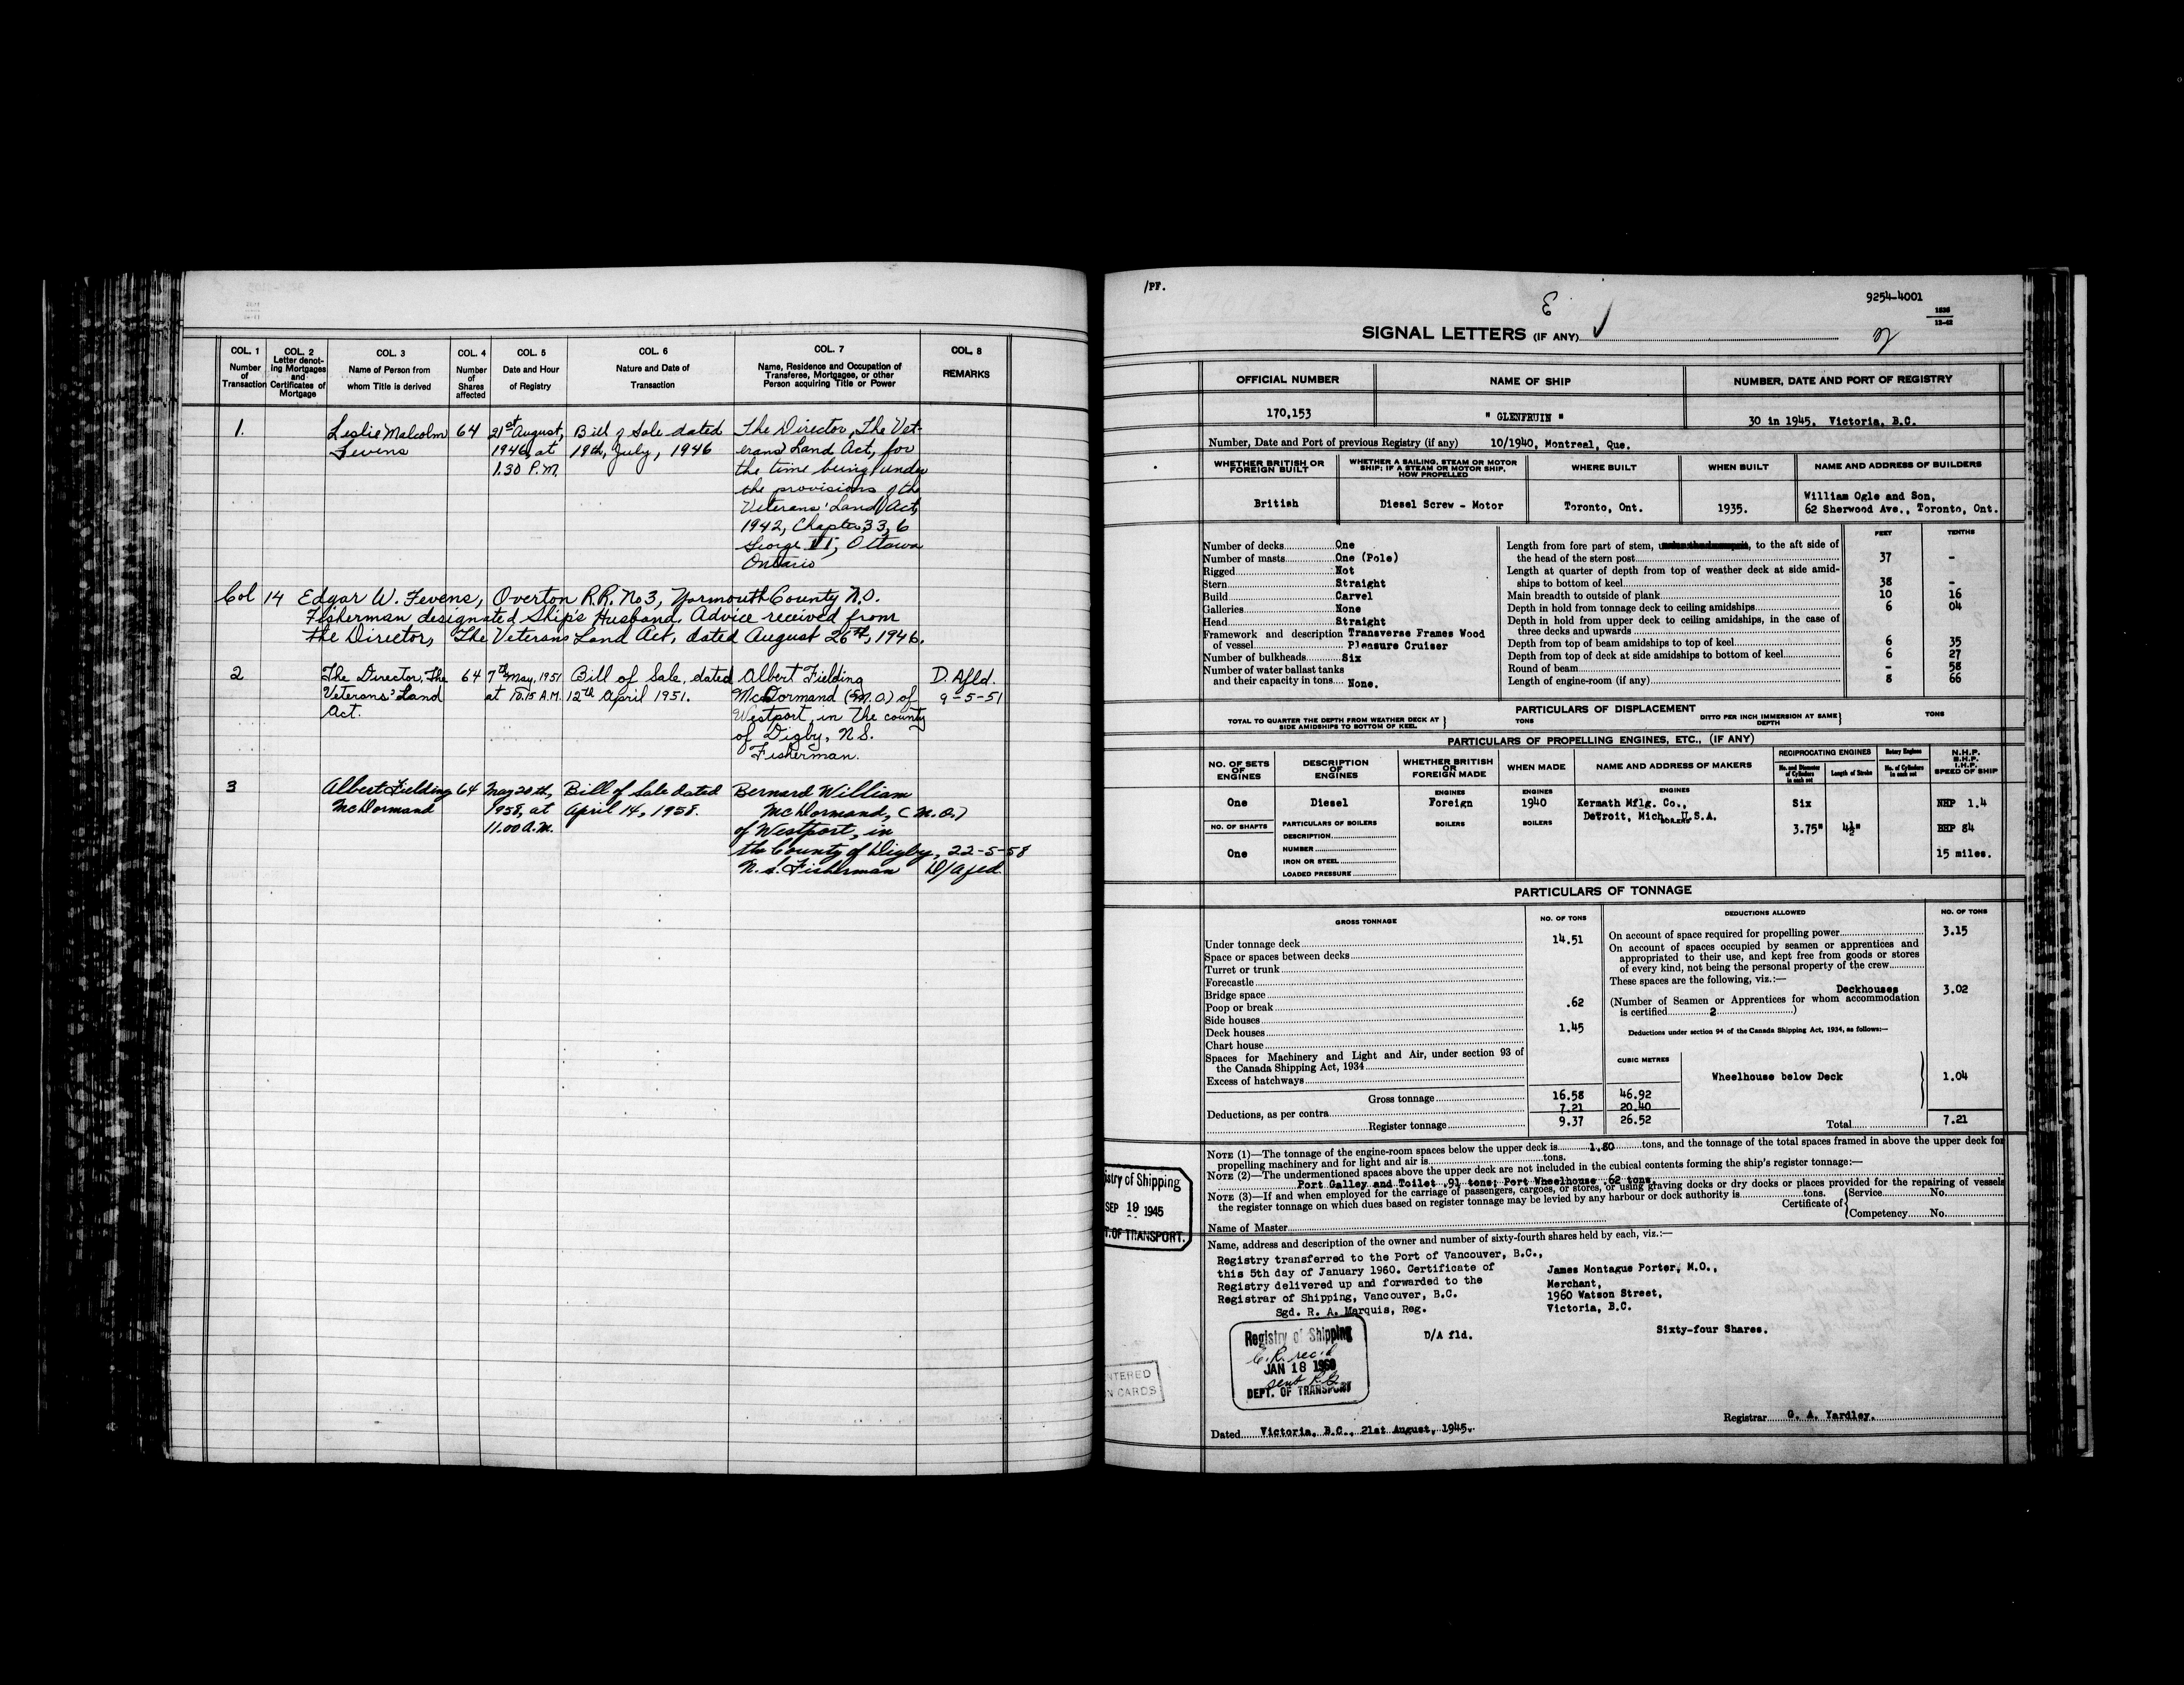 COL. 1
Number
of
Transaction
COL. 2
Letter denot-
ing Mortgages
and
Certificates of
Mortgage
COL. 3
Name of Person from
whom Title is derived
COL. 4
Number
of
Shares
affected
COL. 5
Date and Hour
of Registry
COL. 6
Nature and Date of
Transaction
COL. 7
Name, Residence and Occupation of
Transferee, Mortgagee, or other
Person acquiring Title or Power
COL. 8
REMARKS
1.
Leslie Malcolm
Fevens
64
21st August,
1946, at
1.30 P.M.
Bill of Sale dated
19th, July, 1946
The Director, The Vet-
erans' Land Act, for
the time being under
the provisions of the
Veterans' Land Act,
1942, Chapter 33, 6
George VI, Ottawa
Ontario
Col 14 Edgar W. Fevens, Overton R.R. No 3, Yarmouth County N.S.
Fisherman designated Ship's Husband. Advice received from
the Director, The Veterans Land Act, dated August 26th, 1946.
2
The Director, The
Veterans' Land
Act.
64
7th May, 1951
at 10.15 A.M.
Bill of Sale, dated
12th April 1951.
Albert Fielding
McDormand (M.O.) of
Westport, in the county
of Digby, N.S.
Fisherman.
D. Afld.
9-5-51
3
Albert Fielding
McDormand
64
May 20th,
1958, at
11.00 A.M.
Bill of Sale dated
April 14, 1958.
Bernard William
McDormand, (M.O.)
of Westport, in
the County of Digby,
N.S. Fisherman
22-5-58
D/Afled.
/PF.
E
9254-4001
1836
12-42
SIGNAL LETTERS (IF ANY)
OFFICIAL NUMBER
NAME OF SHIP
NUMBER, DATE AND PORT OF REGISTRY
170,153
" GLENFRUIN "
30 in 1945, Victoria, B.C.
Number, Date and Port of previous Registry (if any) 10/1940, Montreal, Que.
WHETHER BRITISH OR
FOREIGN BUILT
WHETHER A SAILING, STEAM OR MOTOR
SHIP; IF A STEAM OR MOTOR SHIP,
HOW PROPELLED
WHERE BUILT
WHEN BUILT
NAME AND ADDRESS OF BUILDERS
British
Diesel Screw - Motor
Toronto, Ont.
1935.
William Ogle and Son,
62 Sherwood Ave., Toronto, Ont.
Number of decks One
Number of masts One (Pole)
Rigged Not
Stern Straight
Build Carvel
Galleries None
Head Straight
Framework and description Transverse Frames Wood
of vessel Pleasure Cruiser
Number of bulkheads Six
Number of water ballast tanks
and their capacity in tons None.
FEET
TENTHS
Length from fore part of stem, to the aft side of
the head of the stern post 37 -
Length at quarter of depth from top of weather deck at side amid-
ships to bottom of keel 38 -
Main breadth to outside of plank 10 16
Depth in hold from tonnage deck to ceiling amidships 6 04
Depth in hold from upper deck to ceiling amidships, in the case of
three decks and upwards
Depth from top of beam amidships to top of keel 6 35
Depth from top of deck at side amidships to bottom of keel 6 27
Round of beam - 58
Length of engine-room (if any) 8 66
PARTICULARS OF DISPLACEMENT
TOTAL TO QUARTER THE DEPTH FROM WEATHER DECK AT
SIDE AMIDSHIPS TO BOTTOM OF KEEL
TONS
DITTO PER INCH IMMERSION AT SAME
DEPTH
TONS
PARTICULARS OF PROPELLING ENGINES, ETC., (IF ANY)
NO. OF SETS
OF
ENGINES
DESCRIPTION
OF
ENGINES
WHETHER BRITISH
OR
FOREIGN MADE
WHEN MADE
NAME AND ADDRESS OF MAKERS
RECIPROCATING ENGINES
No. and Diameter
of Cylinders
in each set
Length of Stroke
Rotary Engines
No. of Cylinders
in each set
N.H.P.
B.H.P.
I.H.P.
SPEED OF SHIP
ENGINES
ENGINES
ENGINES
One
Diesel
Foreign
1940
Kermath Mflg. Co.,
Detroit, Mich. U.S.A.
Six
NHP 1.4
NO. OF SHAFTS
PARTICULARS OF BOILERS
BOILERS
BOILERS
BOILERS
3.75"
4½"
BHP 84
DESCRIPTION
NUMBER
One
IRON OR STEEL
LOADED PRESSURE
15 miles.
PARTICULARS OF TONNAGE
GROSS TONNAGE
NO. OF TONS
DEDUCTIONS ALLOWED
NO. OF TONS
Under tonnage deck 14.51
Space or spaces between decks
Turret or trunk
Forecastle
Bridge space
Poop or break .62
Side houses
Deck houses 1.45
Chart house
Spaces for Machinery and Light and Air, under section 93 of
the Canada Shipping Act, 1934
Excess of hatchways
Gross tonnage 16.58 46.92
Deductions, as per contra 7.21 20.40
Register tonnage 9.37 26.52
On account of space required for propelling power 3.15
On account of spaces occupied by seamen or apprentices and
appropriated to their use, and kept free from goods or stores
of every kind, not being the personal property of the crew
These spaces are the following, viz.:—
Deckhouses 3.02
(Number of Seamen or Apprentices for whom accommodation
is certified 2 )
Deductions under section 94 of the Canada Shipping Act, 1934, as follows:—
CUBIC METRES
Wheelhouse below Deck 1.04
Total 7.21
NOTE (1)—The tonnage of the engine-room spaces below the upper deck is 1.80 tons, and the tonnage of the total spaces framed in above the upper deck for
propelling machinery and for light and air is tons.
NOTE (2)—The undermentioned spaces above the upper deck are not included in the cubical contents forming the ship's register tonnage:—
Port Galley and Toilet .91 tons; Port Wheelhouse .62 tons.
NOTE (3)—If and when employed for the carriage of passengers, cargoes, or stores, or using graving docks or dry docks or places provided for the repairing of vessels
the register tonnage on which dues based on register tonnage may be levied by any harbour or dock authority is tons.
Certificate of
(Service No.
Competency No.
Name of Master
istry of Shipping
SEP 19 1945
T. OF TRANSPORT.
Name, address and description of the owner and number of sixty-fourth shares held by each, viz.:—
Registry transferred to the Port of Vancouver, B.C.,
this 5th day of January 1960. Certificate of
Registry delivered up and forwarded to the
Registrar of Shipping, Vancouver, B.C.
Sgd. R. A. Marquis, Reg.
D/A fld.
James Montague Porter, M.O.,
Merchant,
1960 Watson Street,
Victoria, B.C.
Sixty-four Shares.
Registry of Shipping
C.R. rec'd
JAN 18 1960
sent
DEPT. OF TRANSPORT
NTERED
N CARDS
Dated Victoria, B.C., 21st August, 1945.
Registrar G. A. Yardley.